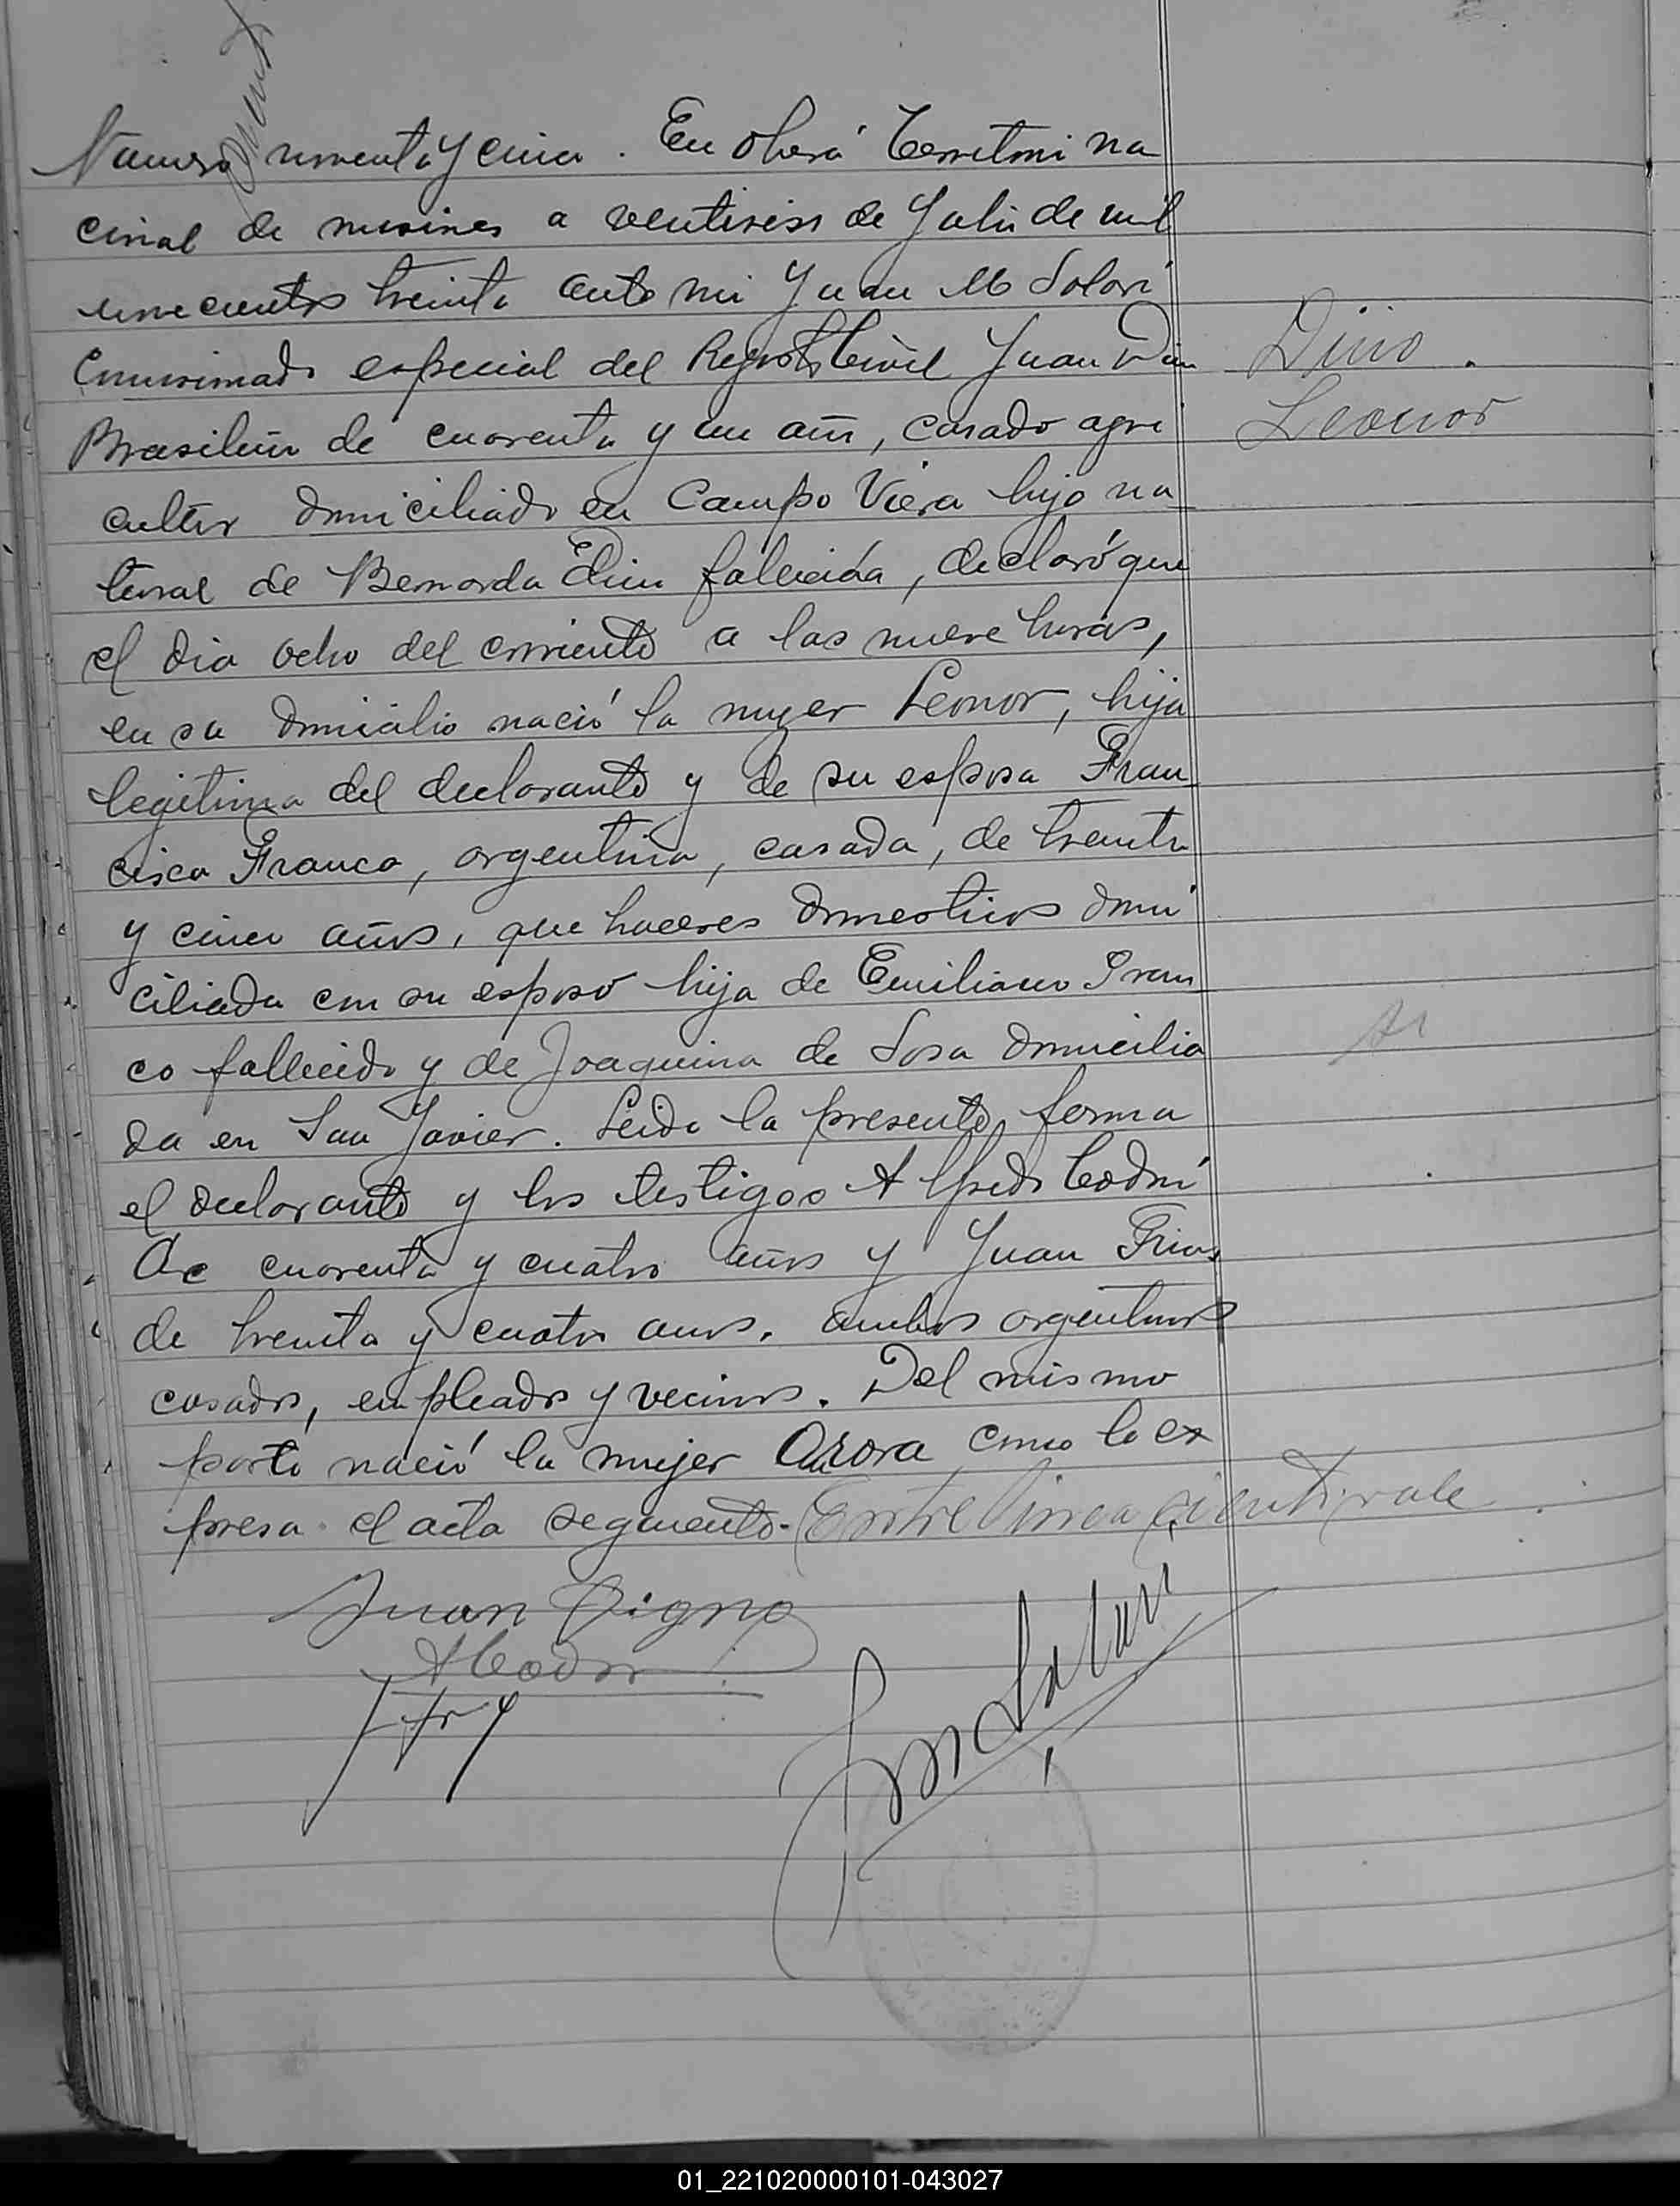 Numero noventa y cinco. En Oberá Territorio na
cional de misiones a veintiseis de Julio de mil
novecientos treinta ante mi Juan M Solari
Comisionado especial del Registro Civil Juan Dino
Brasilero de cuarenta y un años, casado agri
cultor domiciliado en Campo Viera hijo na
tural de Bernarda Dino fallecida, declaró que
el dia ocho del corriente a las nueve horas,
en su domicilio nació la mujer Leonor, hija
legitima del declarante y de su esposa Fran
cisca Franco, argentina, casada, de treinta
y cinco años, que haceres domesticos domi
ciliada con su esposo hija de Emiliano Fran
co fallecido y de Joaquina de Sosa domicilia
da en San Javier. Leida la presente firma
el declarante y los testigos Alfredo Codni
de cuarenta y cuatro años y Juan Frias
de treinta y cuatro años. ambos argentinos
casados, empleados y vecinos. Del mismo
parto nació la mujer Aurora como lo ex
presa el acta siguiente. Entre linea vale
Dino.
Leonor
Juan Digno
A Codni
01_221020000101-043027